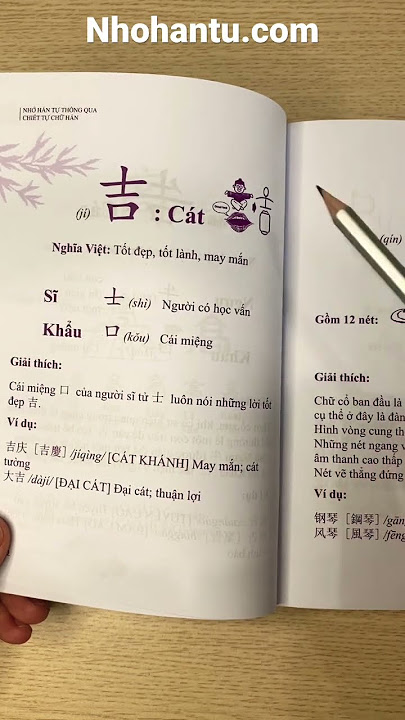 Nhohantu.com
NHỚ HÁN TỰ THÔNG QUA
CHIẾT TỰ CHỮ HÁN
(jí) 吉 : Cát
Nghĩa Việt: Tốt đẹp, tốt lành, may mắn
Sĩ 士 (shì) Người có học vấn
Khẩu 口 (kǒu) Cái miệng
Giải thích:
Cái miệng 口 của người sĩ tử 士 luôn nói những lời tốt
đẹp 吉.
Ví dụ:
吉庆 [吉慶] /jíqìng/ [CÁT KHÁNH] May mắn; cát
tường
大吉 /dàjí/ [ĐẠI CÁT] Đại cát; thuận lợi
(qín)
Gồm 12 nét:
Giải thích:
Chữ cổ ban đầu là
cụ thể ở đây là đàn
Hình vòng cung th
Những nét ngang v
âm thanh cao thấp
Nét vẽ thẳng đứng
Ví dụ:
钢琴 [鋼琴] /gān
风琴 [風琴] /fēn